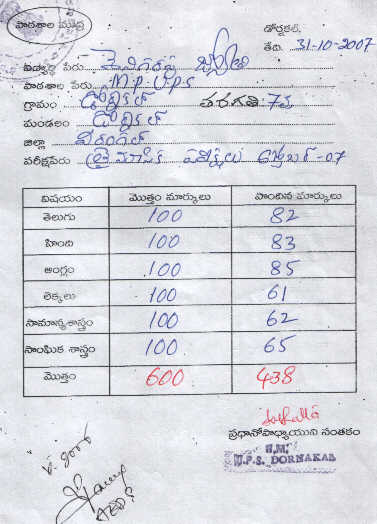 పాఠశాల ముద్ర
డోర్నకల్,
తేది. 31-10-2007
విద్యార్థి పేరు జ్యోతి
పాఠశాల పేరు M.P.U.P.S
గ్రామం డోర్నకల్ తరగతి: 7వ
మండలం డోర్నకల్
జిల్లా వరంగల్
పరీక్షపేరు త్రైమాసిక పరీక్షలు అక్టోబర్-07
విషయం మొత్తం మార్కులు పొందిన మార్కులు
తెలుగు 100 82
హింది 100 83
ఆంగ్లం 100 85
లెక్కలు 100 61
సామాన్యశాస్త్రం 100 62
సాంఘిక శాస్త్రం 100 65
మొత్తం 600 438
ప్రధానోపాధ్యాయుని సంతకం
H.M.
U.P.S. DORNAKAL